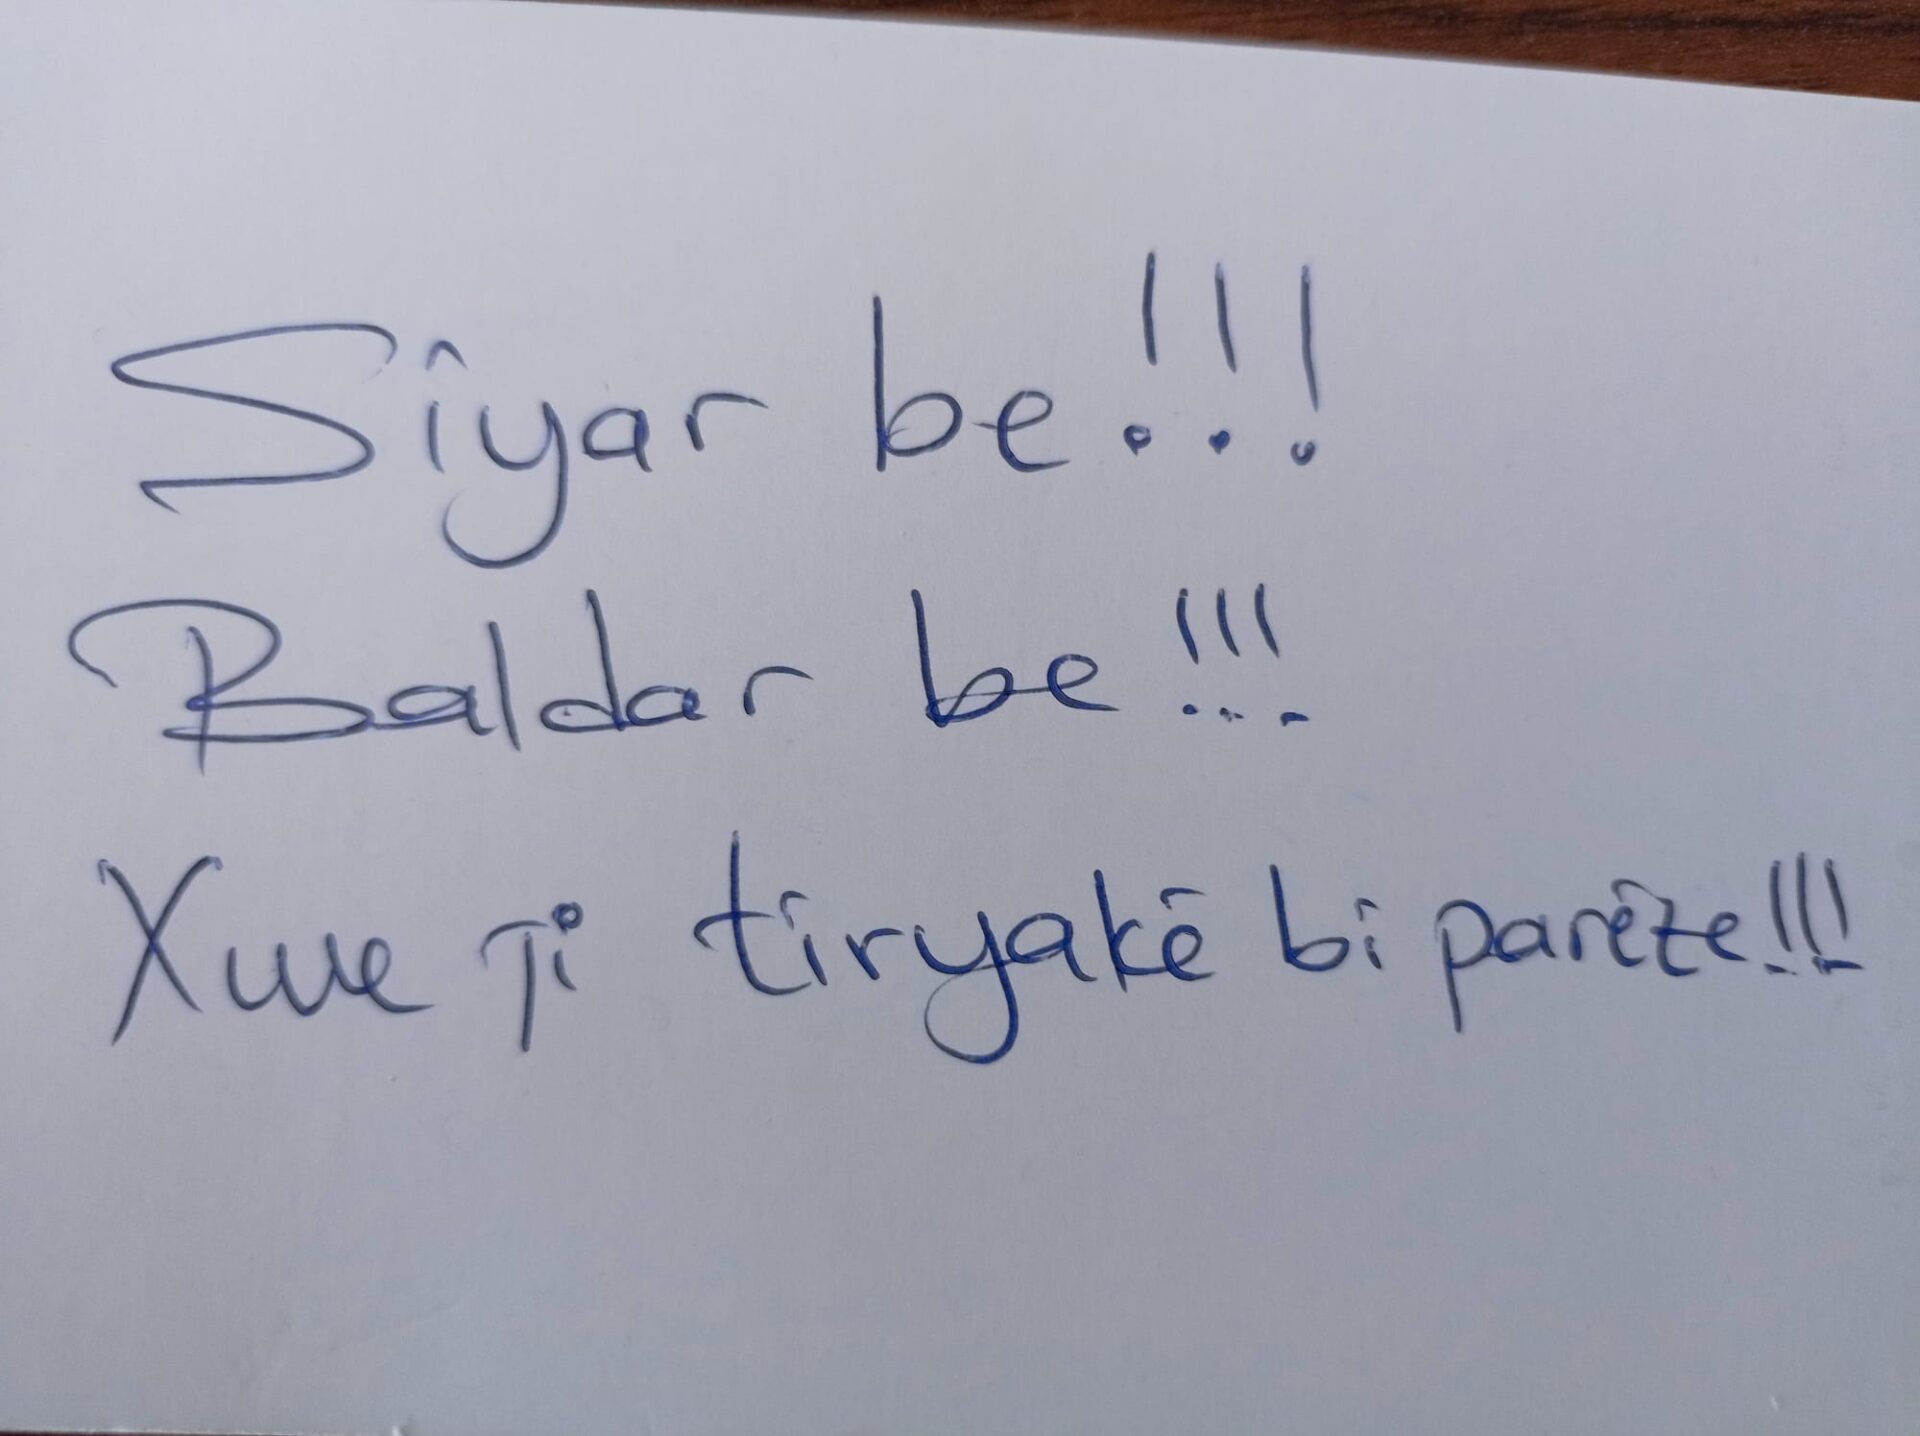 Sîyar be!!!
Baldar be!!!
Xwe ji tiryakê bi parêze!!!